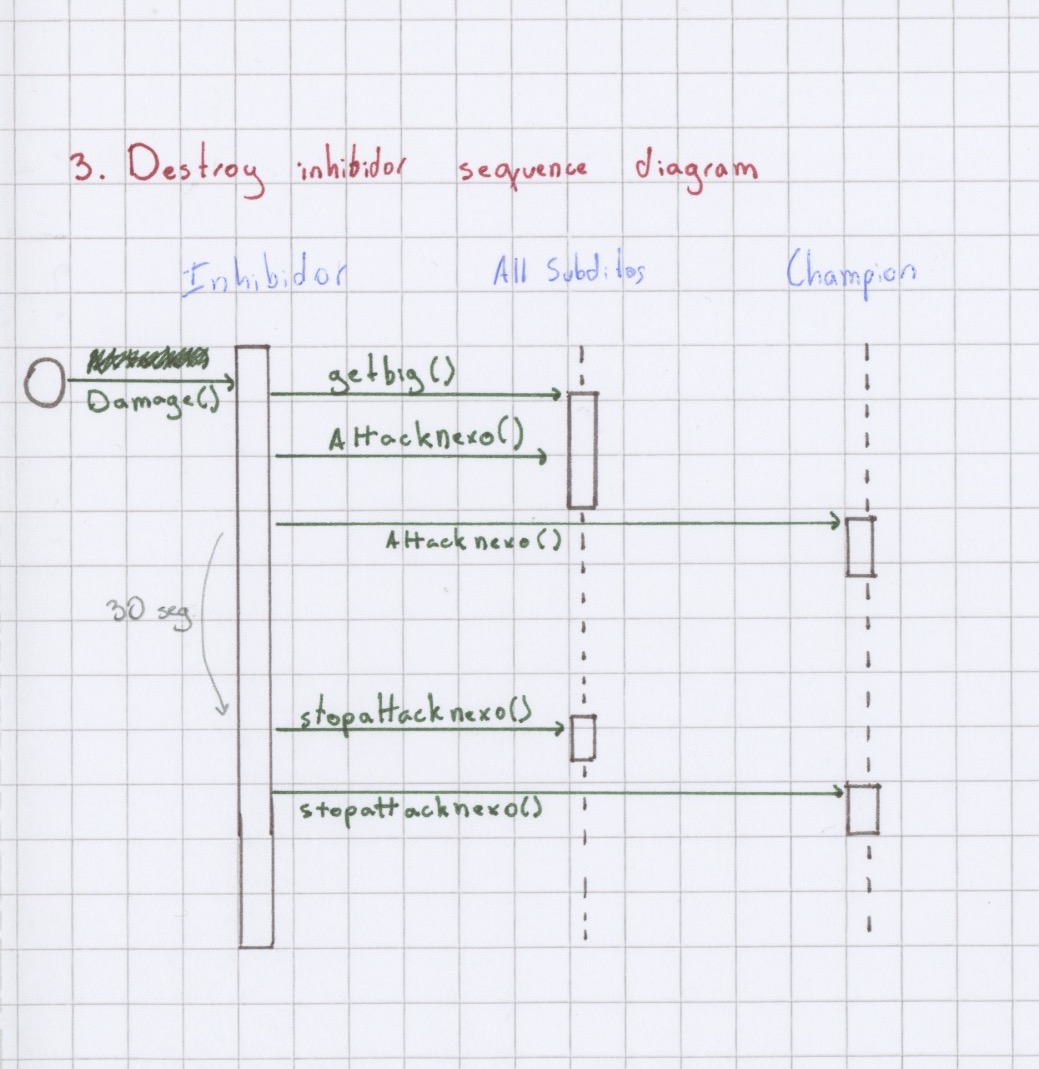 3. Destroy inhibidor sequence diagram
Inhibidor All Subditos Champion
getbig()
Damage()
Attacknexo()
Attacknexo()
30 seg
stopattacknexo()
stopattacknexo()